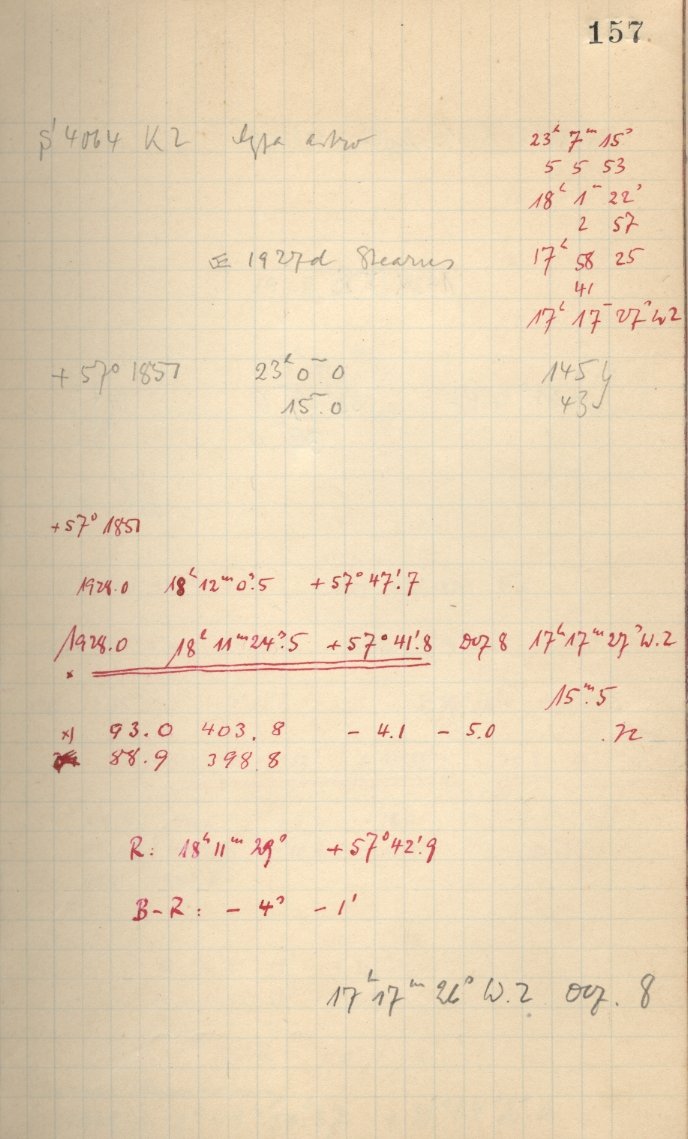 157
4064 K2
23ʰ 7ᵐ 15ˢ
5 5 53
18ʰ 1ᵐ 22ˢ
2 57
1927d Stearns
17ʰ 58 25
41
17ʰ 17ᵐ 27ˢ W.Z
+57° 1851 23ʰ 0ᵐ 0
15ᵐ.0
+57° 1851
1928.0 18ʰ 12ᵐ 0ˢ.5 +57° 47'.7
1928.0 18ʰ 11ᵐ 24ˢ.5 +57° 41'.8 Dez 8 17ʰ 17ᵐ 27ˢ W.Z
15ᵐ.5
93.0 403.8 - 4.1 - 5.0
88.9 398.8
R: 18ʰ 11ᵐ 29ˢ +57° 42'.9
B-R: - 4ˢ - 1'
17ʰ 17ᵐ 26ˢ W.Z Dez. 8